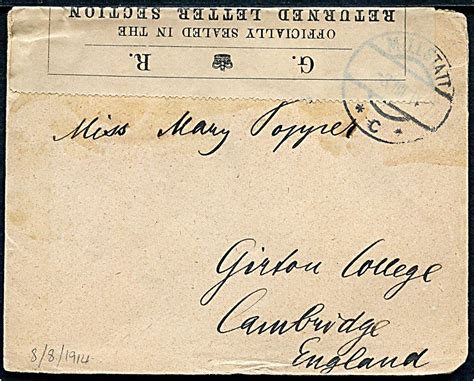 G. R.
OFFICIALLY SEALED IN THE
RETURNED LETTER SECTION
Miss Mary
Girton College
Cambridge
England
8/8/1914